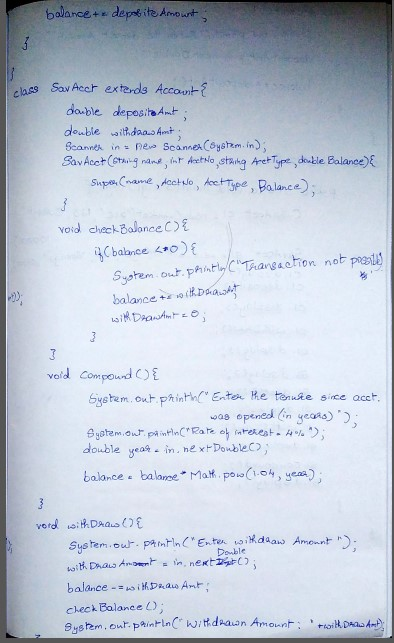 balance += depositeAmount;
}
}
class SavAcct extends Account{
double depositeAmt;
double withdrawAmt;
Scanner in = new Scanner(System.in);
SavAcct(String name, int AcctNo, string AcctType, double Balance){
Super(name, AcctNo, AcctType, Balance);
}
void checkBalance(){
if(balance <=0){
System.out.println("Transaction not possible
");
balance += withDrawAmt
withDrawAmt = 0;
}
}
void Compound(){
System.out.println("Enter the tenure since acct.
was opened (in years)");
System.out.println("Rate of interest = 4%");
double year = in.nextDouble();
balance = balance * Math.pow(1.04, year);
}
void withDraw(){
System.out.println("Enter withdraw Amount");
withDrawAmount = in.nextDouble();
balance -= withDrawAmt;
checkBalance();
System.out.println("Withdrawn Amount: " + withDrawAmt);